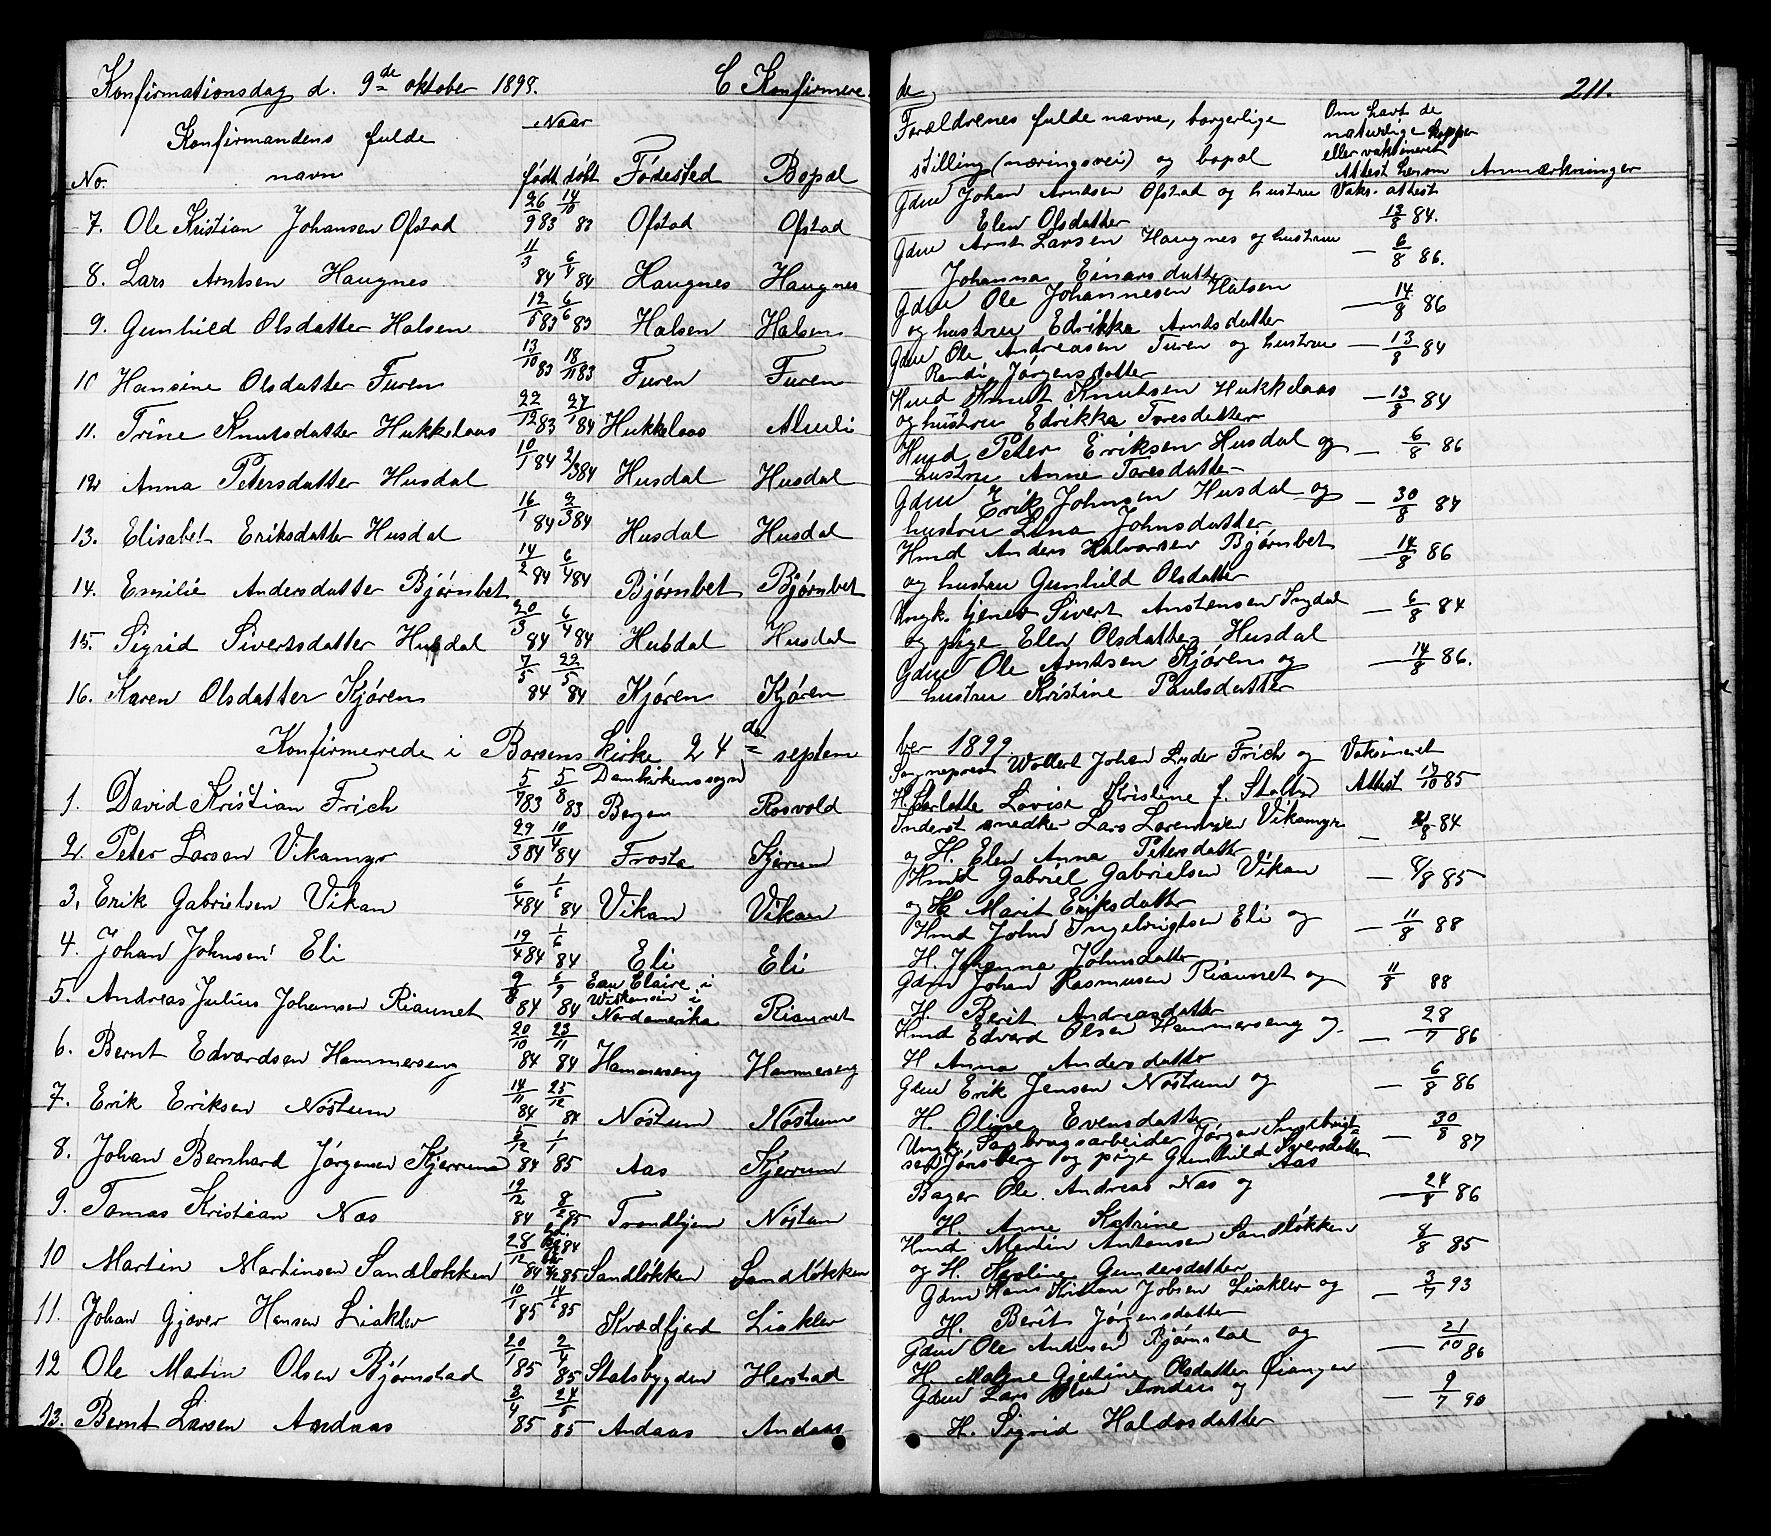 Konfirmationsdag d. 9de oktober 1898. C Konfirmere de 211.
No. Konfirmandens fulde navn Naar født døbt Fødested Bopæl Forældrenes fulde navne, borgerlige stilling (næringsvei) og bopæl Om havt de naturlige kopper eller vaksineret Attest herom Anmærkninger
7. Ole Kristian Johansen Ofstad 26/9 83 14/10 83 Ofstad Ofstad Gdm Johan Arntsen Ofstad og hustru Vaks. attest
Elen Olsdatter 13/8 84.
8. Lars Arntsen Haugnes 11/3 84 6/4 84 Haugnes Haugnes Gdm Arnt Larsen Haugnes og hustru
Johanna Einarsdatter — 6/8 86.
9. Gunhild Olsdatter Halsen 12/5 83 6/6 83 Halsen Halsen Gdm Ole Johannesen Halsen
og hustru Edrikka Arntsdatter — 14/8 86
10 Hansine Olsdatter Furen 13/10 83 18/11 83 Furen Furen Gdm Ole Andreasen Furen og hustru
Randi Jørgensdatter — 13/8 84
11. Trine Knutsdatter Hukkelaas 22/12 83 27/1 84 Hukkelaas Hmd Knut Knutsen Hukkelaas
og hustru Edrikka Toresdatter — 13/8 84
12 Anna Petersdatter Husdal 10/1 84 2/3 84 Husdal Husdal Hmd Peter Eriksen Husdal og
hustru Anne Toresdatter — 6/8 86
13. Elisabet Eriksdatter Husdal 16/1 84 2/3 84 Husdal Husdal Gdm Erik Johnsen Husdal og
hustru Lina Johnsdatter — 30/8 84
14. Emilie Andersdatter Bjørnbet 14/2 84 6/4 84 Bjørnbet Bjørnbet Hmd Anders Halvorsen Bjørnbet
og hustru Gunhild Olsdatter — 14/8 86
15. Sigrid Sivertsdatter Husdal 20/3 84 6/4 84 Husdal Husdal Ungk. tjener Sivert Anstensen
og pige Elen Olsdatter Husdal — 6/8 84
16. Karen Olsdatter Kjøren 7/5 84 22/5 84 Kjøren Kjøren Gdm Ole Arntsen Kjøren og
hustru Kristine Paulsdatter — 14/8 86.
Konfirmerede i Børsens kirke 24de september 1899.
1. David Kristian Frich 5/7 83 5/8 83 Domkirkens sogn Bergen Rosvold Sogneprest Wollert Johan Lyder Frich og Vaksineret
H. Sarlotte Lovise Kristine f. Attest 13/10 85
2. Peter Larsen Vikamyr 29/3 84 10/4 84 Frosta Kjerum Inderst snedker Lars Vikamyr
og H. Elen Anna Petersdatter — 8 84
3. Erik Gabrielsen Vikan 6/4 84 1/6 84 Vikan Vikan Hmd Gabriel Gabrielsen Vikan
og H. Marit Eriksdatter — 8/8 85
4. Johan Johnsen Eli 19/4 84 1/6 84 Eli Eli Hmd John Ingebrigtsen Eli og
H. Johanna Johnsdatter — 11/8 88
5. Andreas Julius Johansen Riaunet 9/8 84 84 Eau Claire i Wiskonsin i Nordamerika Riaunet Gdm Johan Rasmusen Riaunet og
H. Berit Andreasdatter 11/8 88
6. Bernt Edvardsen Hammerseng 20/10 84 23/11 84 Hammerseng Hammerseng Hmd Edvard Olsen Hammerseng og
H Anna Andersdatter — 28/7 86
7. Erik Eriksen Nöstum 14/11 84 25/12 84 Nöstum Nöstum Gdm Erik Jensen Nöstum og
H. Oline Evensdatter — 6/8 86
8. Johan Bernhard Jørgensen Kjerrum 5/12 84 1/1 85 Aas Kjerrum Ungk. Sagbrugsarbeider Jørgen Ingebrigt=
sen Jønsberg og pige Gunhild Sversdatter Aas — 30/8 87
9. Tomas Kristian Næs 19/12 84 8/2 85 Trondhjem Nöstum Bager Ole Andreas Næs og
H. Anne Katrine — 24/8 86
10 Martin Martinsen Sandløkken 28/12 84 85 Sandløkken Sandløkken Hmd Martin Antonsen Sandløkken
og H. Karoline Gundersdatter 8/8 85
11. Johan Gjæver Hansen Liaklev 10/1 85 14/6 85 Kvædfjord Liaklev Gdm Hans Kristian Jobsen Liaklev og
H. Berit Jørgensdatter — 3/7 93
12 Ole Martin Olsen Bjørnstad 20/1 85 2/4 85 Statsbygden Herstad Gdm Ole Andersen Bjørnstad og
H. Malene Gjertine Olsdatter Øiangen — 21/10 86
13. Bernt Larsen Andaas 3/4 85 24/5 85 Andaas Andaas Gdm Lars Olsen Andaas og
H. Sigrid Haldosdatter — 9/7 90